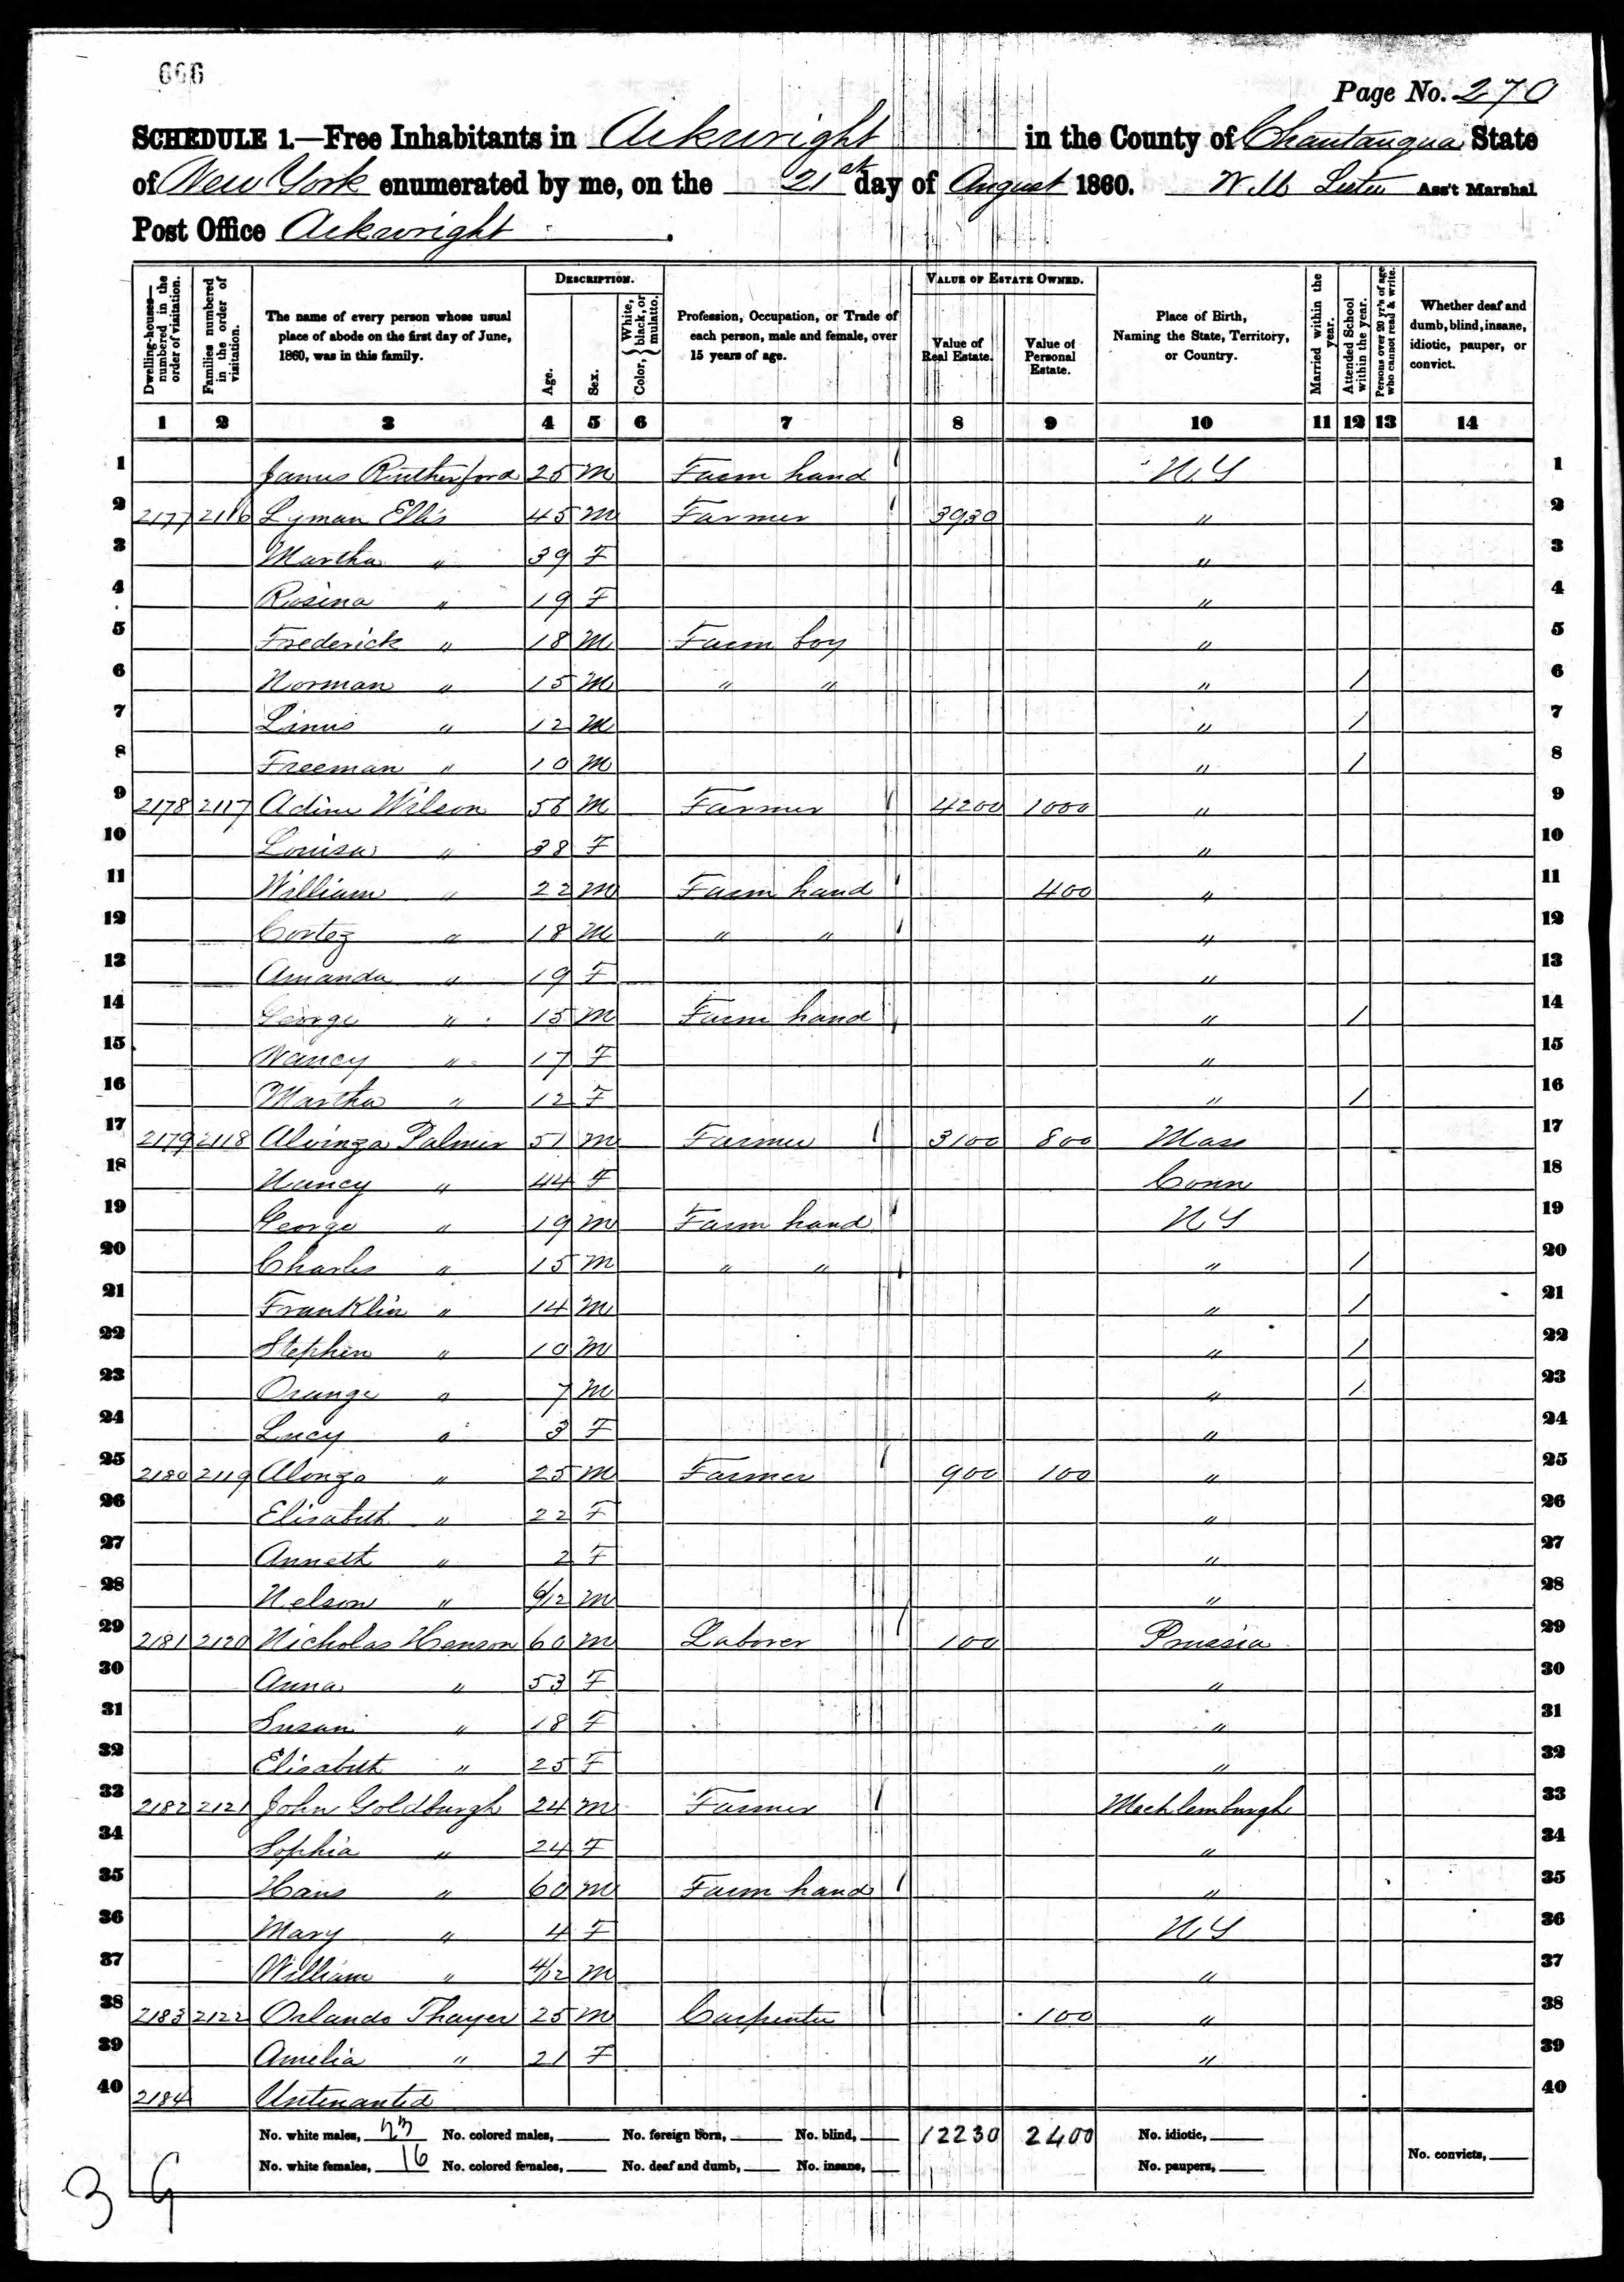 666
Page No. 270
SCHEDULE 1.—Free Inhabitants in Arkwright in the County of Chautauqua State
of New York enumerated by me, on the 21st day of August 1860. Ass't Marshal
Post Office Arkwright.
Dwelling-houses—numbered in the order of visitation. Families numbered in the order of visitation. The name of every person whose usual place of abode on the first day of June, 1860, was in this family. DESCRIPTION. Age. Sex. Color, { White, black, or mulatto. Profession, Occupation, or Trade of each person, male and female, over 15 years of age. VALUE OF ESTATE OWNED. Value of Real Estate. Value of Personal Estate. Place of Birth, Naming the State, Territory, or Country. Married within the year. Attended School within the year. Persons over 20 yr's of age who cannot read & write. Whether deaf and dumb, blind, insane, idiotic, pauper, or convict.
1 2 3 4 5 6 7 8 9 10 11 12 13 14
1 James Rutherford 25 M Farm hand / N.Y 1
2 2177 2116 Lyman Ellis 45 M Farmer / 3930 " 2
3 Martha " 39 F " 3
4 Rosina " 19 F " 4
5 Frederick " 18 M Farm boy " 5
6 Norman " 15 M " " " / 6
7 Linus " 12 M " / 7
8 Freeman " 10 M " / 8
9 2178 2117 Wilson 56 M Farmer / 4200 1000 " 9
10 Louisa " 38 F " 10
11 William " 22 M Farm hand / 400 " 11
12 Cortez " 18 M " " / " 12
13 Amanda " 19 F " 13
14 George " 15 M Farm hand / " / 14
15 Nancy " 17 F " 15
16 Martha " 12 F " / 16
17 2179 2118 Alvinza Palmer 51 M Farmer / 3100 800 Mass 17
18 Nancy " 44 F Conn 18
19 George " 19 M Farm hand / N Y 19
20 Charles " 15 M " " / " / 20
21 Franklin " 14 M " / 21
22 Stephen " 10 M " / 22
23 Orange " 7 M " / 23
24 Lucy " 3 F " 24
25 2180 2119 Alonzo " 25 M Farmer / 900 100 " 25
26 Elisabeth " 22 F " 26
27 Anneth " 2 F " 27
28 Nelson " 6/12 M " 28
29 2181 2120 Nicholas Henson 60 M Laborer / 100 Prussia 29
30 Anna " 53 F " 30
31 Susan " 18 F " 31
32 Elisabeth " 25 F " 32
33 2182 2121 John Goldburgh 24 M Farmer / Mechlemburgh 33
34 Sophia " 24 F " 34
35 Hans " 60 M Farm hand / " 35
36 Mary " 4 F N Y 36
37 William " 4/12 M " 37
38 2183 2122 Orlando Thayer 25 M Carpenter / 100 " 38
39 Amelia " 21 F " 39
40 2184 Untenanted 40
No. white males, 23 No. colored males, No. foreign born, No. blind, 12230 2400 No. idiotic,
No. white females, 16 No. colored females, No. deaf and dumb, No. insane, No. paupers, No. convicts,
3 G